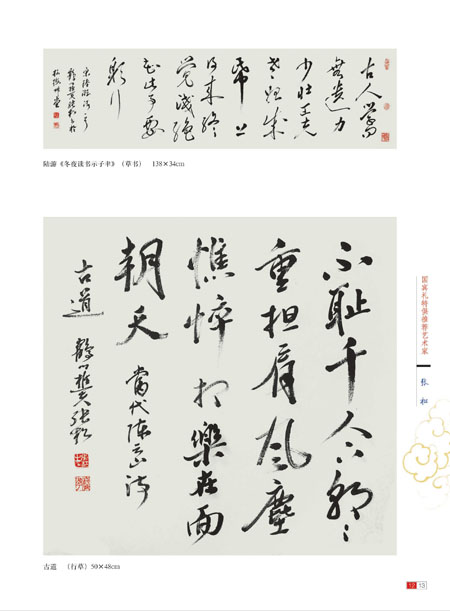 古人學问
無遺力
少壮工夫
老始成
纸上
得来终
觉浅绝
知此事要
躬行
宋陸游诗
陆游《冬夜读书示子聿》（草书） 138×34cm
不耻千人
重担肩風塵
憔悴 樂在面
朝天 當代陈 诗
古道
古道 （行草）50×48cm
国宾礼特供推荐艺术家
张
12 13